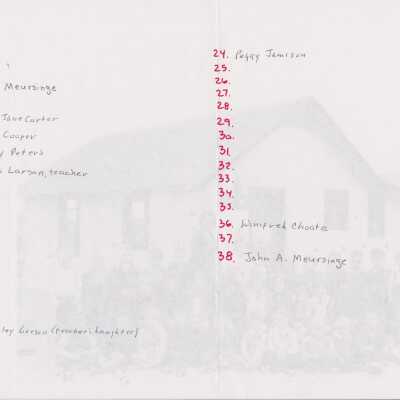 Meursinge
Jane Carter
Cooper
Peters
Larson, teacher
(teacher's daughter)
24. Peggy Jamison
25.
26.
27.
28.
29.
30.
31.
32.
33.
34.
35.
36. Winifred Choate
37.
38. John A. Meursinge